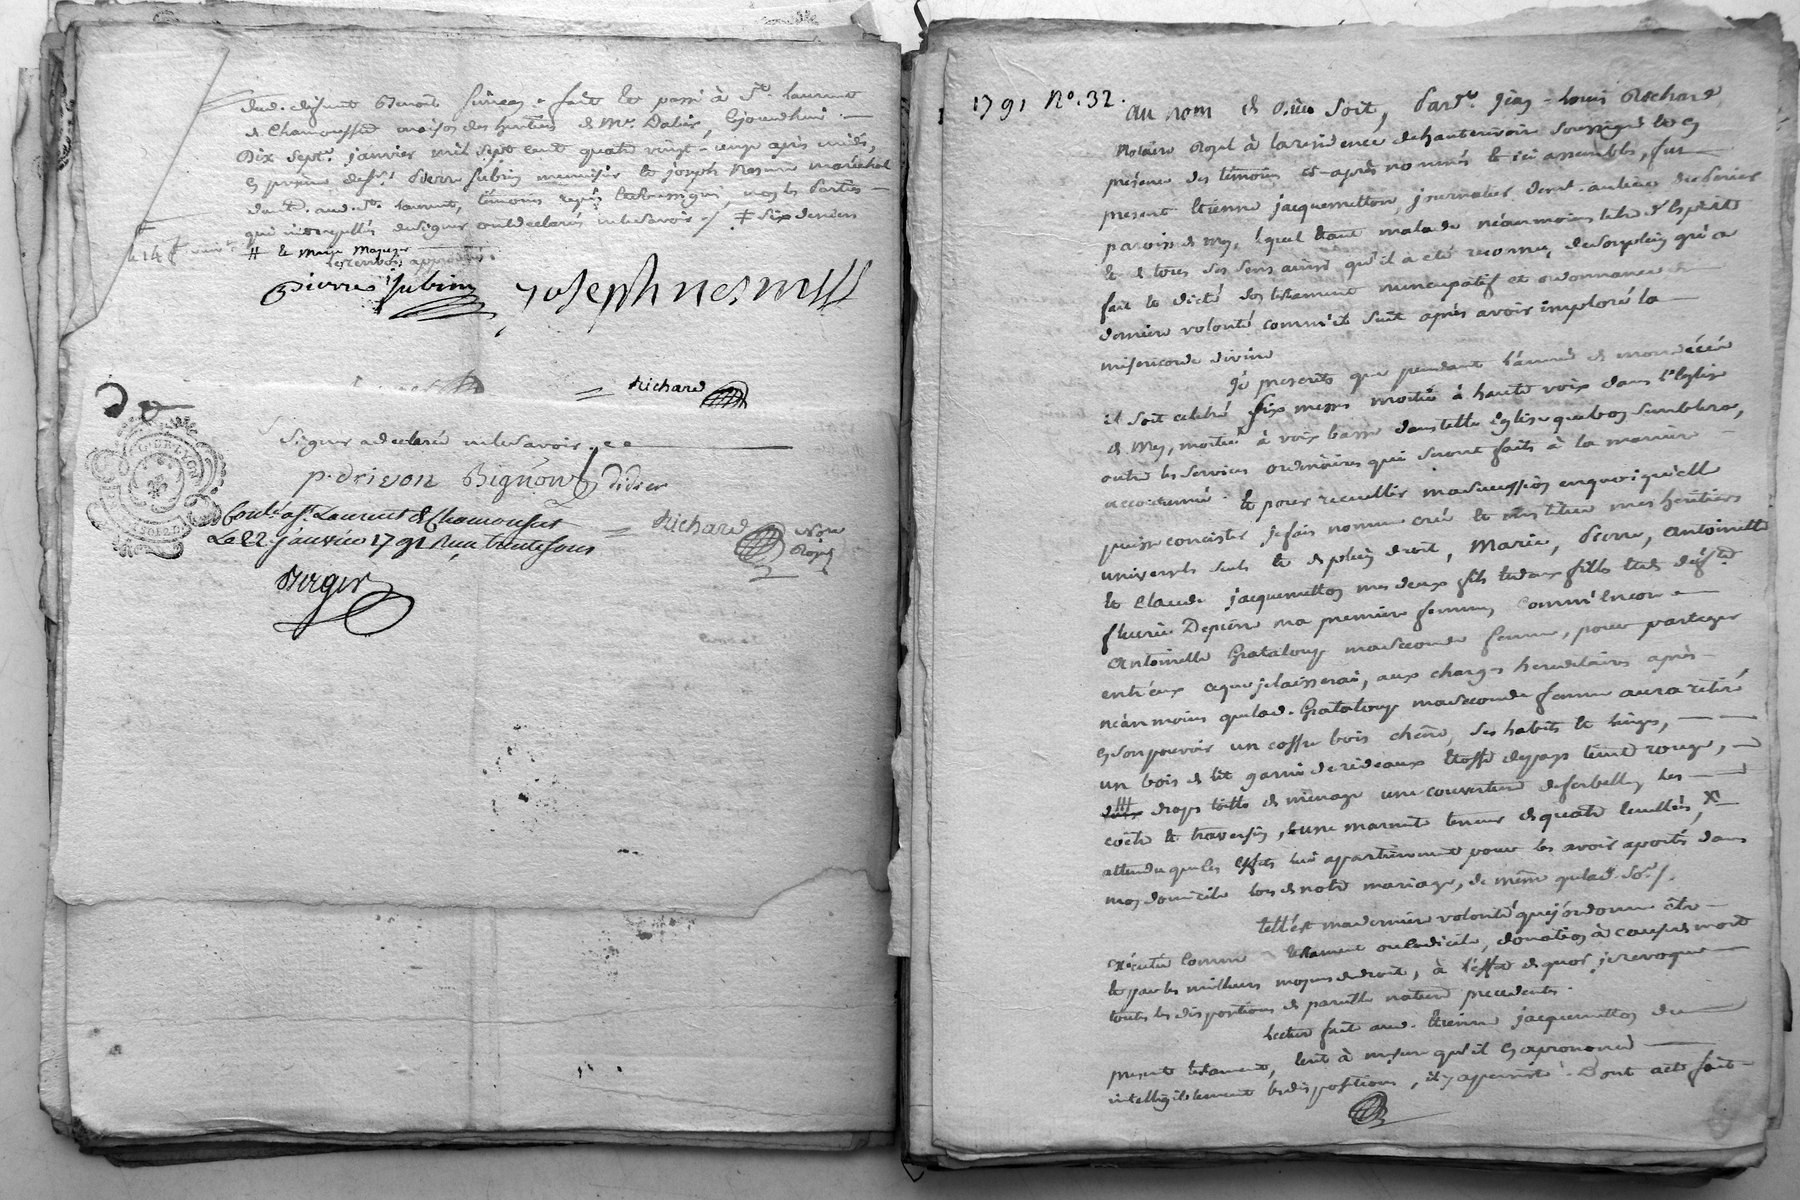 dud. défunt Benoit fait et passé à St. laurent
de Chamousset maison des heritiers de Mr. Dalie, cejourdhui
Dix sept. janvier mil sept cent quatre vingt onze après midi,
en présence de Sr. Pierre subrin menuisier et joseph marechal
dud. St. laurent, témoins requis et soussignés, non les parties
qui interpellées de signer ont déclarés ne le savoir ./. six deniers
Pierre Subrin
joseph
Richard
Signer a déclaré ne le savoir.
p. drivon Bignon didier
Conté. a St. Laurent de Chamousset
Richard Nore
Royal
Le 22 janvier 1791 Reçu trente sous
Berger
1791 No. 32.
Au nom de Dieu soit, Pardt. Jean-Louis Richard
Notaire Royal à la residence de hauterivoire soussigné et en
présence des témoins ci-après nommés et ici assemblés, fut
présent Etienne jacquemetton, journalier demt. au lieu
paroisse de Mey, lequel étant malade néanmoins libre d'Esprit
et de tous ses sens ainsi qu'il a été reconnu, de son plein gré a
fait et dicté son testament nuncupatif et ordonnance de
derniere volonté comm'il suit après avoir imploré la
misericorde divine
Je prescrits que pendant l'année de mon décéé
il soit celébré six messes moitié à haute voix dans l'Eglise
de Mey, moitié à voix basse dans telle Eglise que bon semblera,
outre les services ordinaires qui seront faits à la maniere
accoutumé. et pour recueillir ma succession en quoi qu'elle
puisse concister, je fais nomme crée et institue mes héritiers
universels seuls et de plein droit, Marie, Pierre, Antoinette
et Claude jacquemetton mes deux fils et deux filles et de défte.
fleurie Depierre ma premiere femme, comm'Encore
Antoinette Grataloup ma seconde femme, pour partager
entr'eux ce que je laisserai, aux charges hereditaires après
néanmoins que lad. Grataloup ma seconde femme aura retiré
en son pouvoir un coffre bois chêne, ses habits et linges,
un bois de lit garni de rideaux Etoffe de pays teint rouge,
draps toile de ménage une couverture
coëte et traversin, et une marmite teneur de quatre
attendu que les effets lui appartiennent pour les avoir aportés dans
mon domicile lors de notre mariage, de même que lad.
tell'est ma derniere volonté que j'ordonne être
exécutée comme testament ou codicile, donation à cause de mort
et par les meilleurs moyens de droit, à l'effet de quoi je revoque
toutes les dispositions de pareille nature precedentes.
Lecture fait aud. Etienne jacquemetton du
present testament, écrit à mesure qu'il en a prononcé
intelligiblement les dispositions, il y a persisté. Dont acte fait